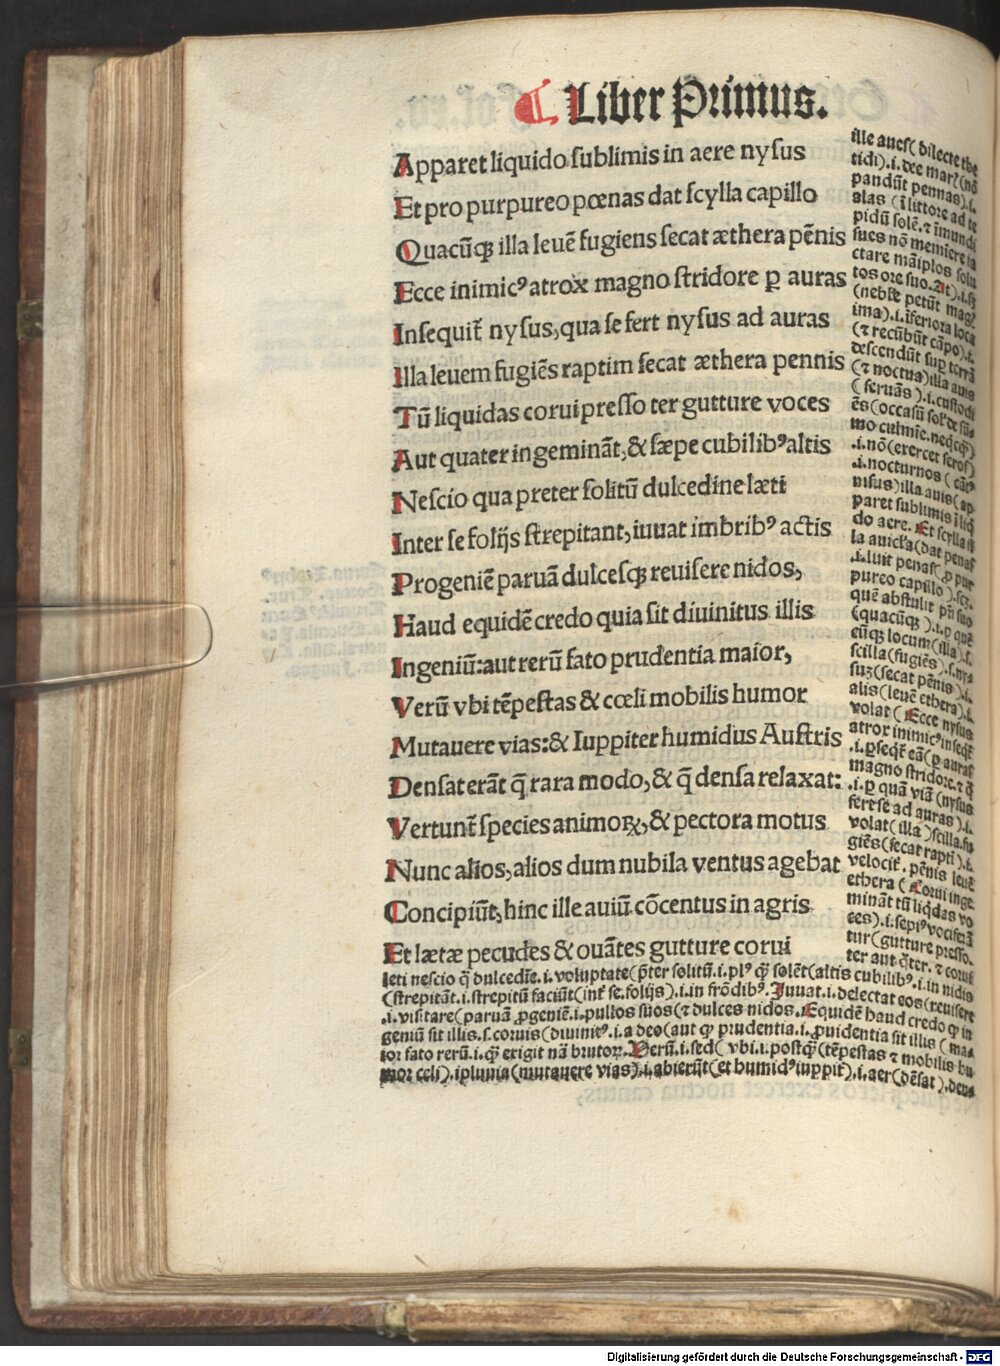 Liber Primus.
Apparet liquido sublimis in aere nysus
Et pro purpureo pœnas dat scylla capillo
Quacūqꝫ illa leuē fugiens secat æthera pēnis
Ecce inimicꝰ atrox magno stridore ꝑ auras
Insequit᷑ nysus, qua se fert nysus ad auras
Illa leuem fugiēs raptim secat æthera pennis
Tū liquidas corui presso ter gutture voces
Aut quater ingemināt, & sæpe cubilibꝰ altis
Nescio qua preter solitū dulcedine læti
Inter se folijs strepitant, iuuat imbribꝰ actis
Progeniē paruā dulcesqꝫ reuisere nidos,
Haud equidē credo quia sit diuinitus illis
Ingeniū: aut rerū fato prudentia maior,
Verū vbi tēpestas & cœli mobilis humor
Mutauere vias: & Iuppiter humidus Austris
Densat erāt q̄ rara modo, & q̄ densa relaxat:
Vertunt᷑ species animoꝝ, & pectora motus
Nunc alios, alios dum nubila ventus agebat
Concipiūt, hinc ille auiū cōcentus in agris
Et lætæ pecudes & ouātes gutture corui
ille aues( dilecte the
tidi).i. dee mar?(nō
pandūt pennas).i.
alas (ī littore ad te
pidū solē.⁊ īmundi
sues nō meminere ia
ctare māiplos solu
tos ore suo. At).i.sꝫ
(nebule petūt mag?
ima).i.īferiora loca
(⁊ recūbūt cāpo).i.
descendūt sup̄ terrā
(⁊ noctua)illa auis
( seruās ).i.custodi
ēs(occasū sol? de sū
mo culmīe.nedqꝫ)
.i.nō(exercet seros)
.i.nocturnos ( cāt?
nisus)illa auis(ap
paret sublimis ī liq
do aere. Et scylla il
la auicla(dat penas
.i.luit penas( ꝓ pur
pureo capillo ).scꝫ.
quē abstulit pr̄i suo
(quacūqꝫ ).i.ꝑ quē
cūqꝫ locum(illa).s.
scilla(fugiēs).s.ny
suꝫ(secat pēnis).i.
alis(leuē ethera).i.
volat( Ecce nysus
atrox inimicꝰ inseqt᷑
.i.ꝑseqt᷑ eā(ꝑ auras
magno stridore.⁊ q̄
.i.ꝑ quā viā (nysus
fert se ad auras).i.
volat(illa )scilla.fu
giēs(secat raptī).i.
velocit᷑. pēnis leuē
ethera ( Corui inge
mināt tū liqdas vo
ces).i.sepiꝰ vociferā
tur(gutture presso.
ter aut q̄ter. ⁊ corui
leti nescio q̄ dulcedīe.i.voluptate(p̄ter solitū.i.plꝰ qꝫ solēt(altis cubilibꝰ.i.in nidis
(strepitāt.i.strepitū faciūt(int᷑ se.folijs).i.in frōdibꝰ. Juuat.i.delectat eos(reuisere
.i.visitare(paruā ꝓgeniē.i.pullos suos(⁊ dulces nidos. Equidē haud credo ꝙ in
geniū sit illis.s.coruis(diuinitꝰ.i.a deo(aut ꝙ prudentia.i.ꝓuidentia sit illis (ma
ior fato rerū.i.qꝫ exigit nā brutoꝝ. Verū.i.sed( vbi.i.postqꝫ(tēpestas ⁊ mobilis hu
mor celi).i.pluuia(mutauere vias).i.abierūt(et humidꝰ iuppit᷑).i.aer(dēsat).dens